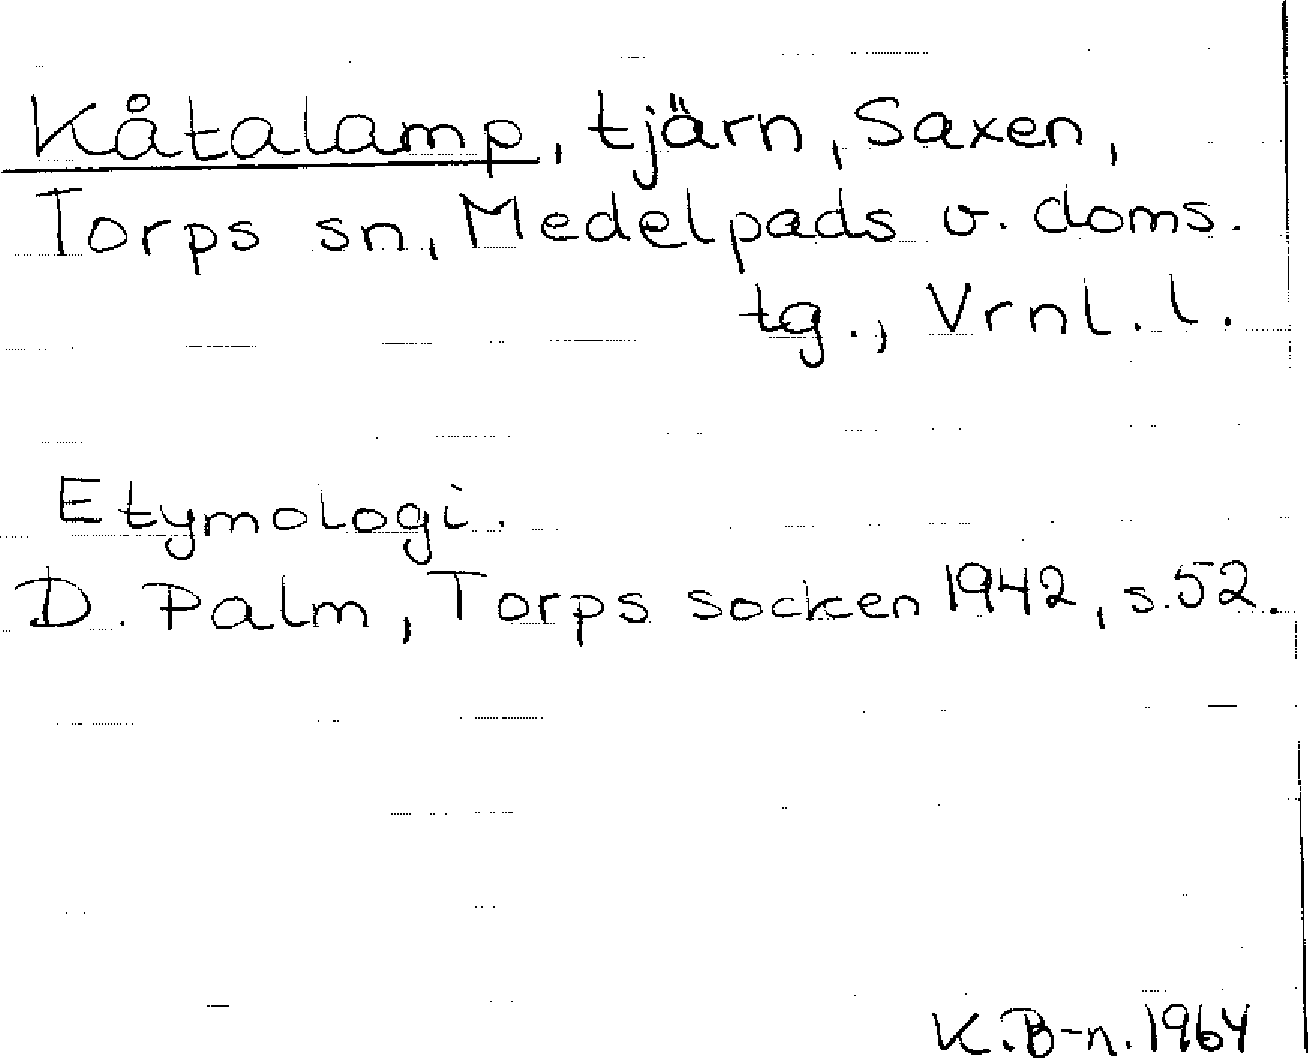 Kåtalamp, tjärn, Saxen,
Torps sn, Medelpads v. doms.
tg., Vrnl. l.
Etymologi.
D. Palm, Torps socken 1942, s. 52.
K. B-n. 1964